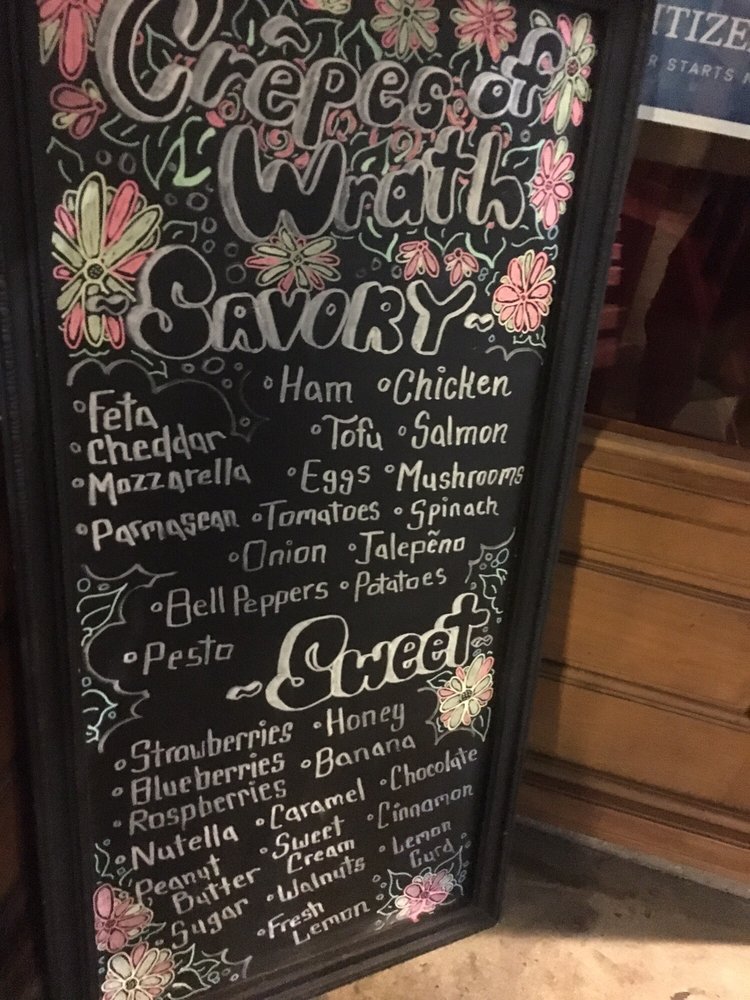 Crêpes of
Wrath
~ SAVORY ~
• Feta • Ham • Chicken
• Cheddar • Tofu • Salmon
• Mozzarella • Eggs • Mushrooms
• Parmasean • Tomatoes • Spinach
• Onion • Jalepẽno
• Bell Peppers • Potatoes
• Pesto
~ Sweet ~
• Strawberries • Honey
• Blueberries • Banana
• Raspberries • Caramel • Chocolate
• Nutella • Sweet Cream • Cinnamon
Peanut Butter • Walnuts • Lemon Curd
• Sugar • Fresh Lemon
STARTS